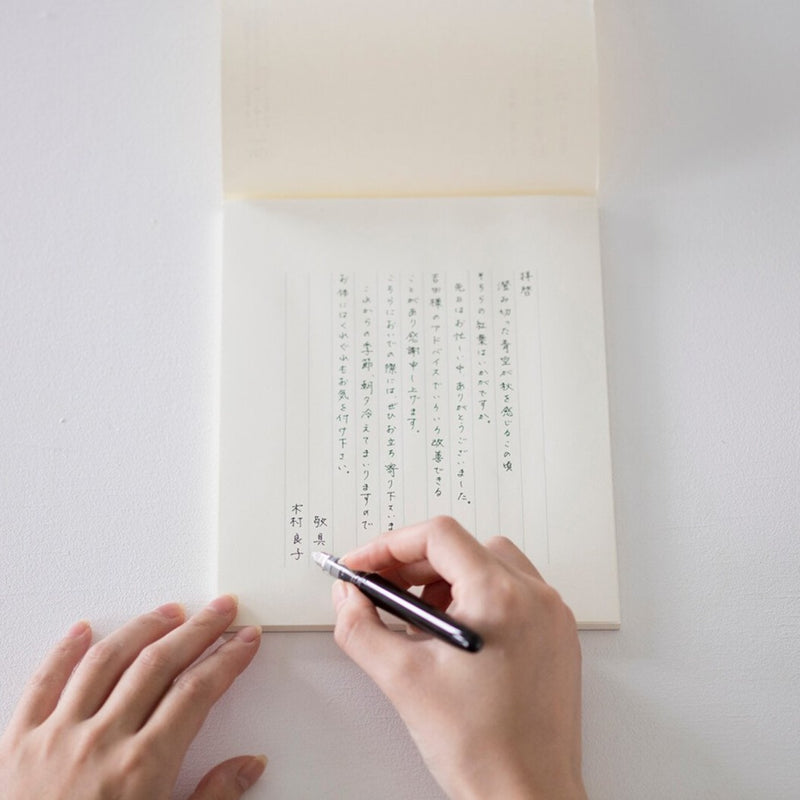 拝啓
澄み切った青空が秋を感じるこの頃
そちらの紅葉はいかがですか。
先日はお忙しい中ありがとうございました。
吉田様のアドバイスでいろいろ改善できる
ことがあり感謝申し上げます。
こちらにおいでの際には、ぜひお立ち寄り下さいま
これからの季節、朝夕冷えてまいりますので
お体にはくれぐれもお気を付け下さい。
敬具
木村良子